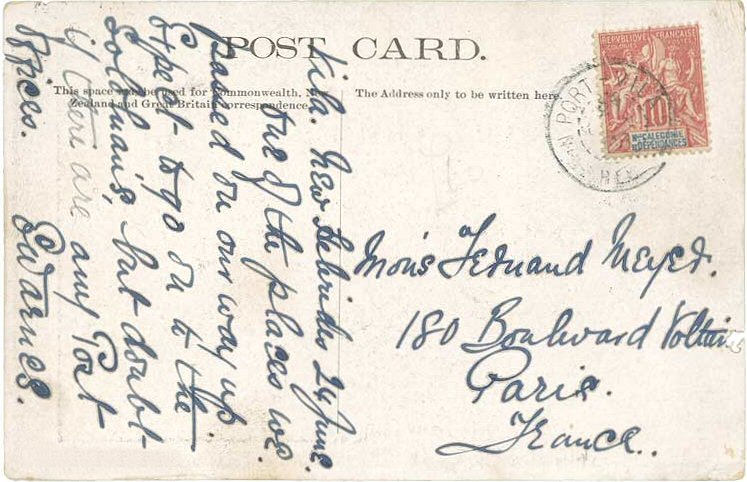 POST CARD.
This space may be used for Commonwealth, New
Zealand and Great Britain correspondence.
The Address only to be written here.
Vila. New Hebrides 24 June.
One of the places we
passed on our way up
Expect to go on to the
Solomans, but doubt
if there are any Post
Offices.
Mons Fernand Meyer.
180 Boulevard Voltaire
Paris.
France.
REPUBLIQUE FRANCAISE
COLONIES POSTES
10
Nlle CALEDONIE
ET DEPENDANCES
PORT VILA